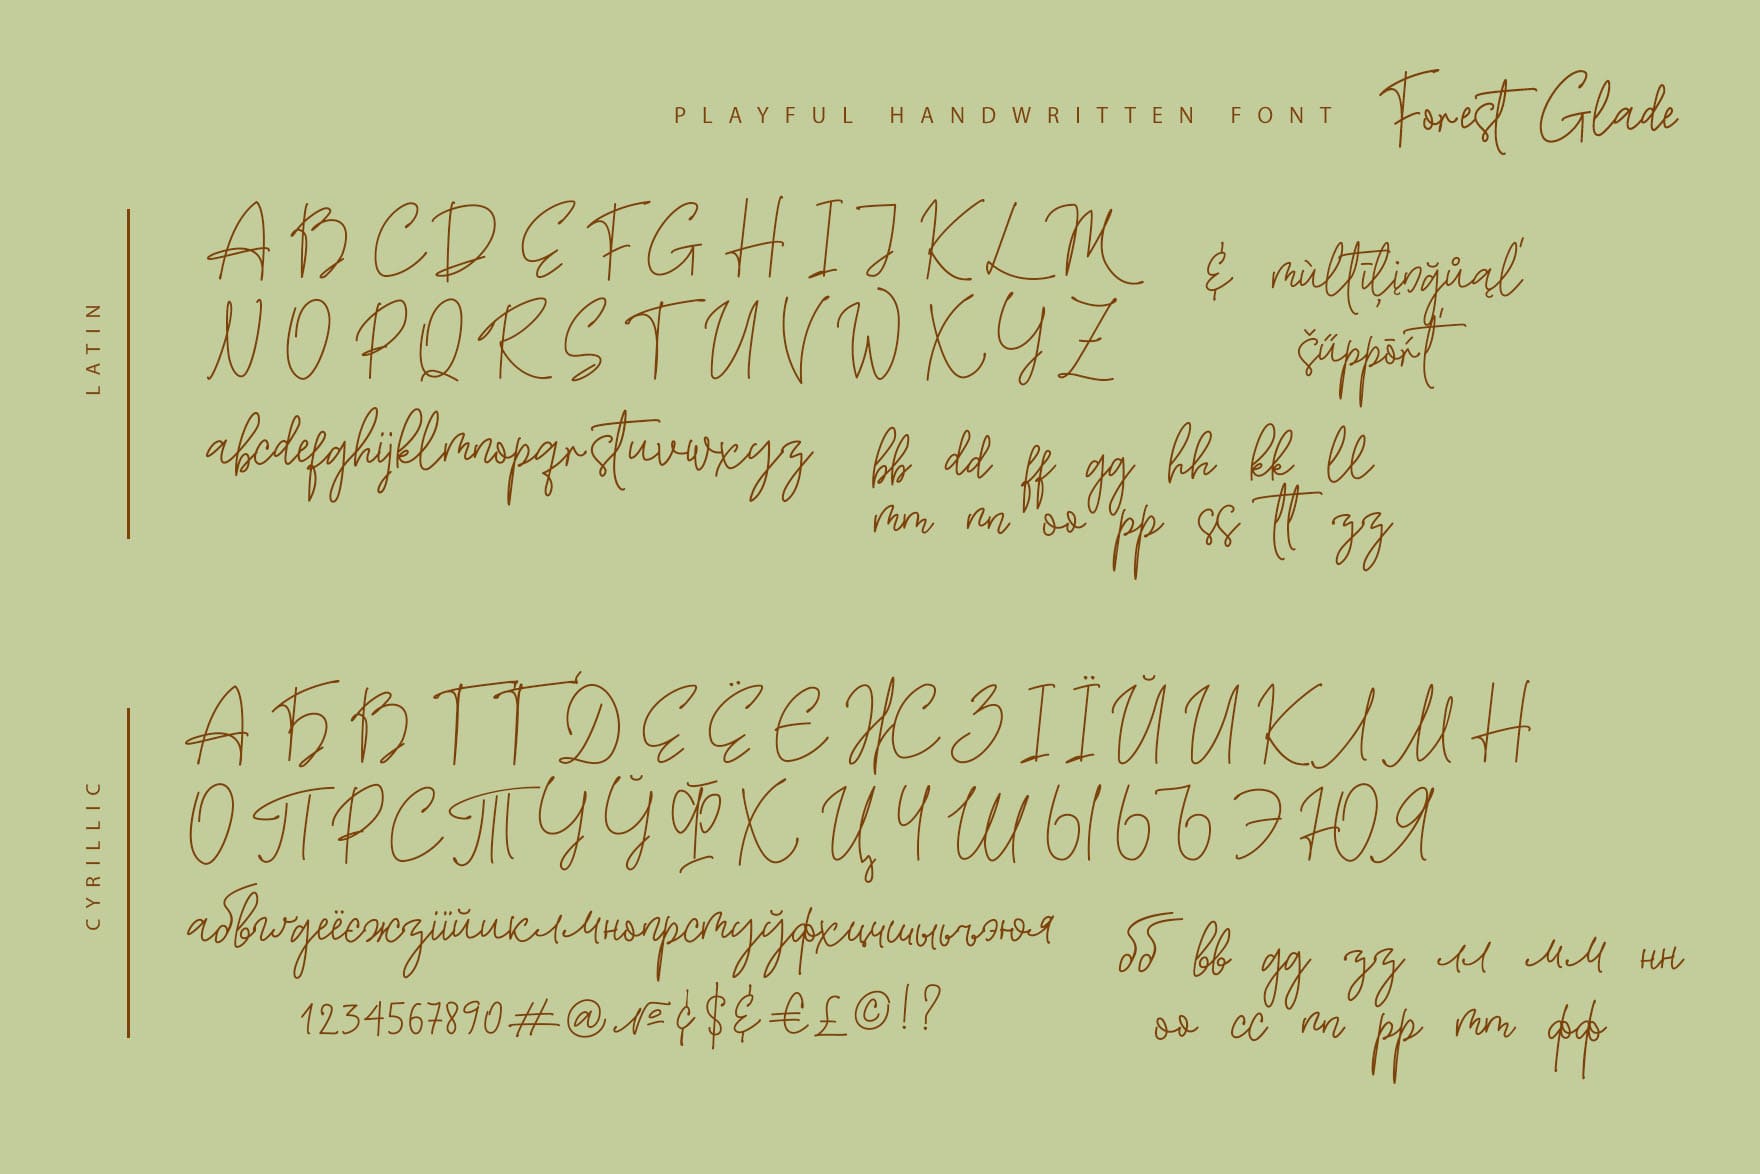 PLAYFUL HANDWRITTEN FONT Forest Glade
LATIN
ABCDEFGHIJKLM
NOPQRSTUVWXYZ
abcdefghijklmnopqrstuvwxyz
& mùltīļįŋğůąĺ
šűppōŕť
bb dd ff gg hh kk ll
mm nn oo pp ss tt zz
CYRILLIC
АБВГҐДЕЁЄЖЗІЇЙИКЛМН
ОПРСТУЎФХЦЧШЫЬЪЭЮЯ
абвгґдеёєжзіїйиклмнопрстуўфхцчшыьъэюя
1234567890#@№¢$&€£©!?
бб вв дд зз лл мм нн
оо сс пп рр тт фф